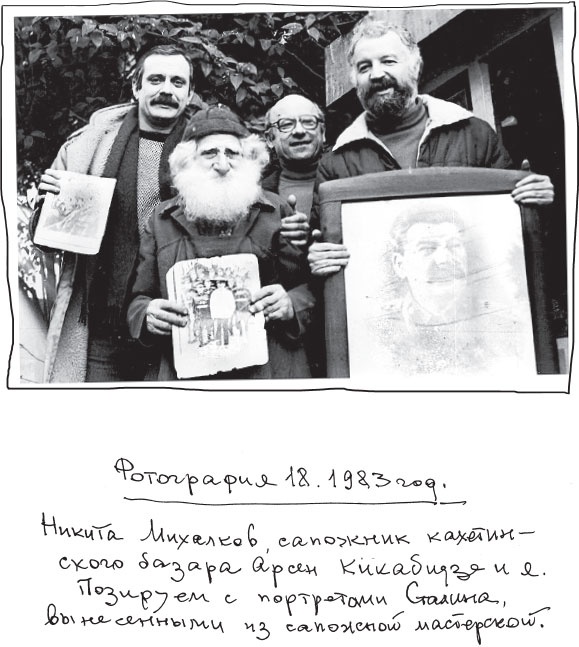 Фотография 18. 1983 год.
Никита Михалков, сапожник кахетин-
ского базара Арсен Кикабидзе и я.
Позируем с портретами Сталина,
вынесенными из сапожной мастерской.